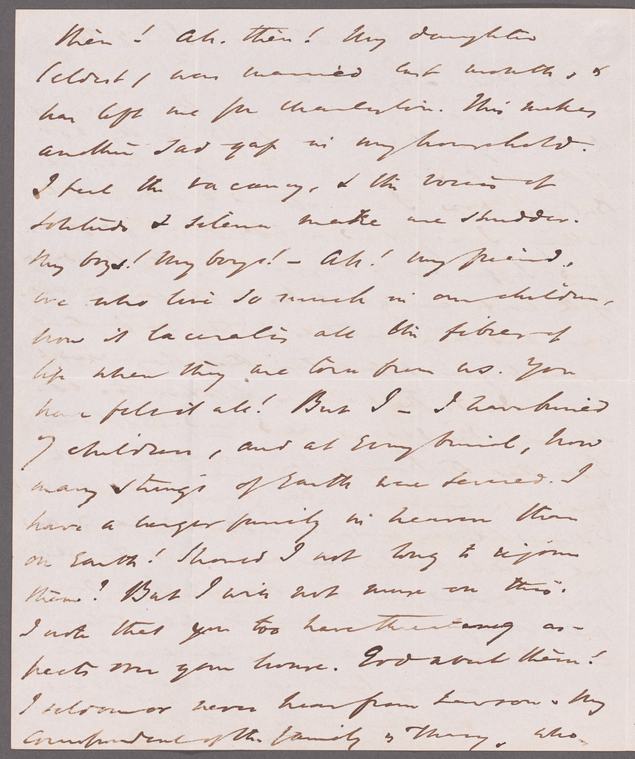 then! Ah. then! My daughter
(eldest) was married last month, &
has left me for Charleston. This makes
another sad gap in my household.
I feel the vacancy, & the voices of
solitude & silence make me shudder.
My boys! My boys! - Ah! my friend,
we who live so much in our children,
how it lacerates all the fibres of
life when they are torn from us. You
have felt it all! But I - I have buried
7 children, and at every burial, how
many strings of Earth were severed. I
have a larger family in heaven than
on Earth! Should I not long to rejoin
them? But I will not muse on this.
I note that you too have threatening as-
pects over your house. God avert them!
I seldom or never hear from Lawson. My
correspondent of the family is, who,